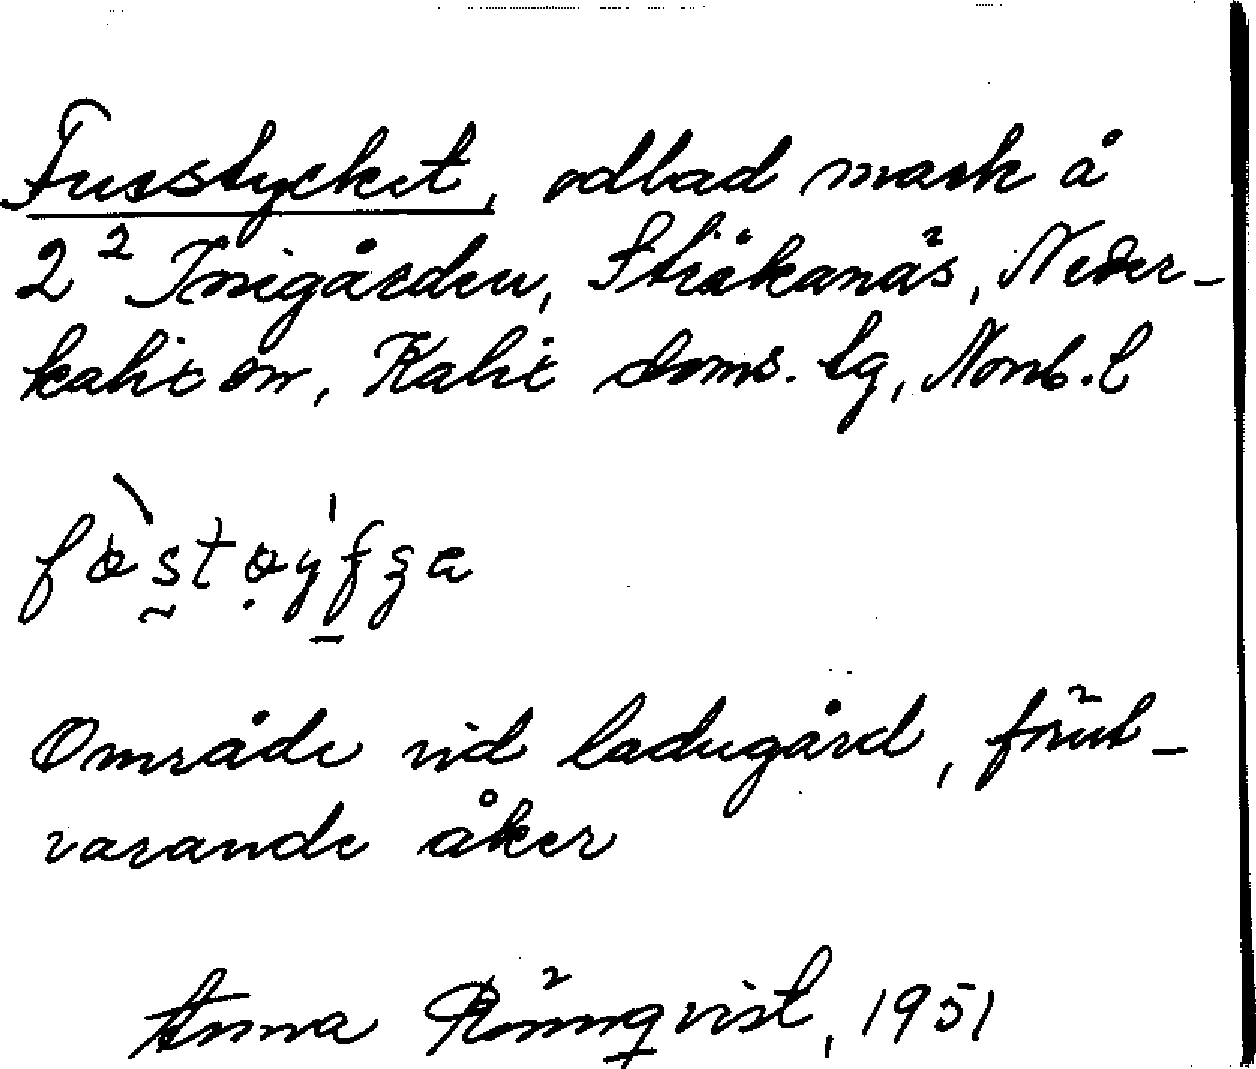 Fusstycket, odlad mark å
2² Innigården, Stråkanäs, Neder-
kalix sn, Kalix doms. lg, Norrb. l
Område vid ladugård, förut-
varande åker
Anna Rönnqvist, 1951